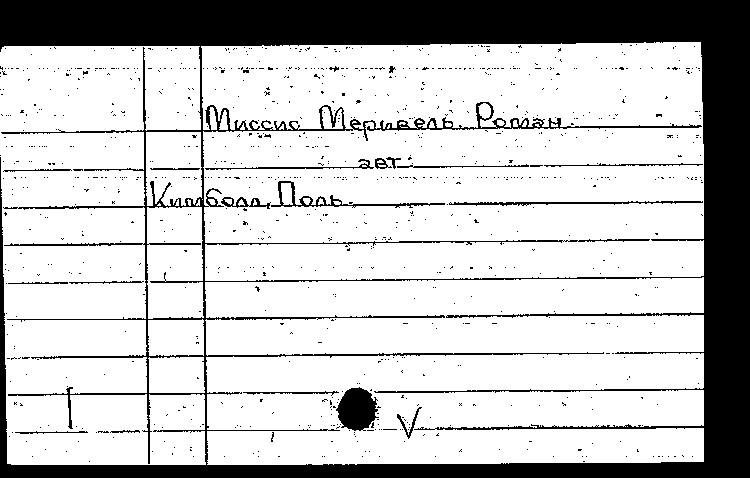 Миссис Меривель. Роман.
авт.:
Кимболл, Поль.
I
V